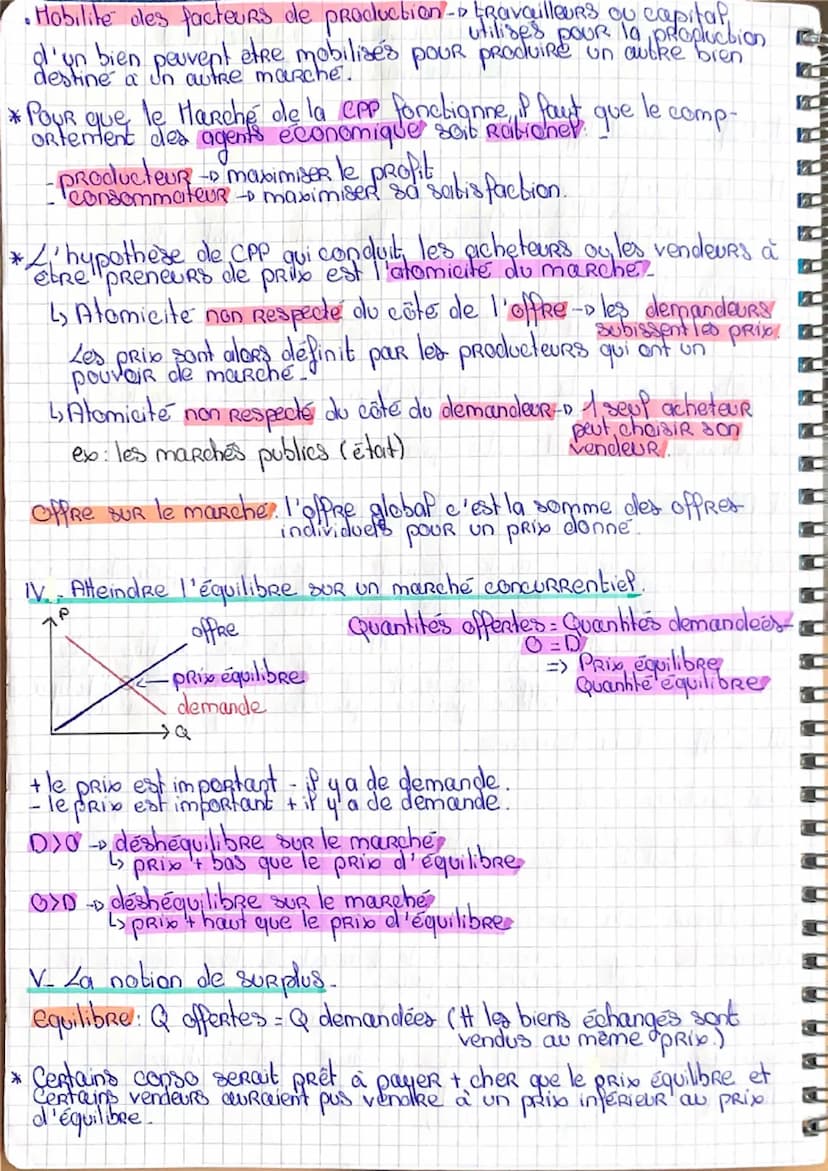 . Mobilité des facteurs de production → travailleurs ou capital
utilisés pour la production
d'un bien peuvent être mobilisés pour produire un autre bien
destiné à un autre marché.
* Pour que le Marché de la CPP fonctionne, il faut que le comp-
ortement des agents économique soit rationel.
- producteur → maximiser le profit
- consommateur → maximiser sa satisfaction.
* L'hypothèse de CPP qui conduit les acheteurs ou les vendeurs à
être "preneurs de prix" est l'atomicité du marché.
↳ Atomicité non respecté du côté de l'offre → les demandeurs
subissent les prix.
Les prix sont alors définit par les producteurs qui ont un
pouvoir de marché.
↳ Atomicité non respecté du côté du demandeur → 1 seul acheteur
peut choisir son
vendeur.
ex : les marchés publics (état)
Offre sur le marché : l'offre global c'est la somme des offres
individuels pour un prix donné.
IV - Atteindre l'équilibre sur un marché concurrentiel.
P
offre
Quantités offertes = Quantités demandées
O = D
prix équilibre
=> Prix équilibre
Quantité équilibre
demande
Q
+ le prix est important - il y a de demande.
- le prix est important + il y a de demande.
D>O → déshéquilibre sur le marché
↳ prix + bas que le prix d'équilibre
O>D → déshéquilibre sur le marché
↳ prix + haut que le prix d'équilibre
V - La notion de surplus.
Equilibre : Q offertes = Q demandées (# les biens échangés sont
vendus au même prix.)
* Certains conso serait prêt à payer + cher que le prix équilibre et
Certains vendeurs auraient pus vendre à un prix inférieur au prix
d'équilibre.